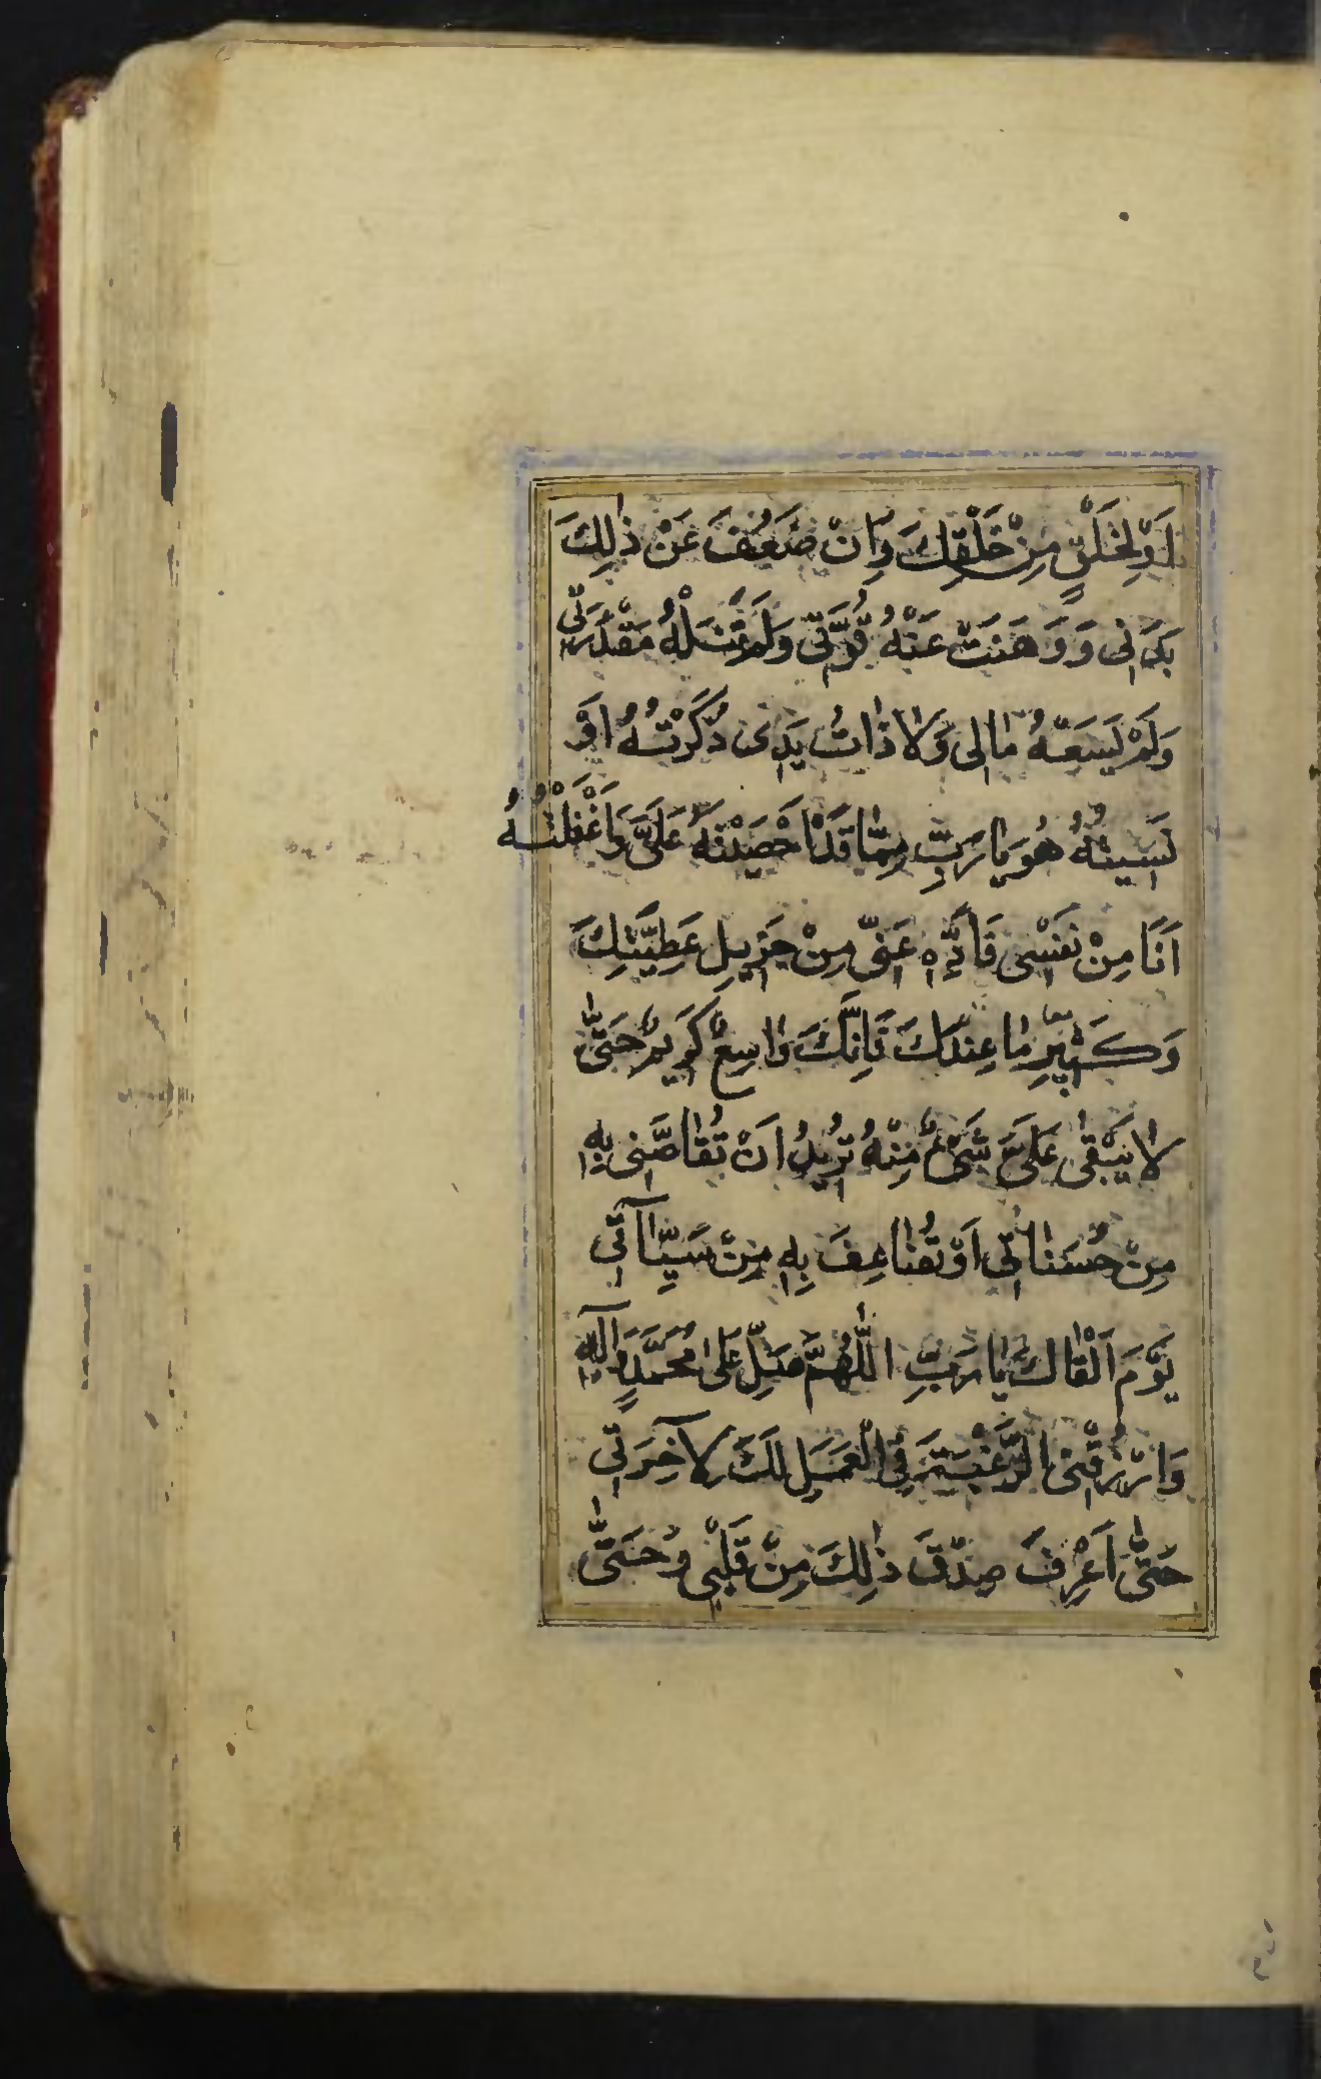 لَكَ اَوْ لِخَلْقٍ مِنْ خَلْقِكَ وَاِنْ ضَعُفَ عَنْ ذٰلِكَ
بَدَنِى وَوَهَنَتْ عَنْهُ قُوَّتِى وَلَمْ تَنَلْهُ مَقْدُرَتِى
وَلَمْ يَسَعْهُ مٰالِى وَلاٰ ذٰاتُ يَدِى ذَكَرْتُهُ اَوْ
نَسِيتُهُ هُوَ يٰا رَبِّ مِمّٰا قَدْ اَحْصَيْتَهُ عَلَىَّ وَاَغْفَلْتُهُ
اَنَا مِنْ نَفْسِى فَاَدِّهِ عَنِّى مِنْ جَزِيلِ عَطِيَّتِكَ
وَكَثِيرِ مٰا عِنْدَكَ فَاِنَّكَ وٰاسِعٌ كَرِيمٌ حَتّٰى
لاٰ يَبْقٰى عَلَىَّ شَىْءٌ مِنْهُ تُرِيدُ اَنْ تُقٰاصَّنِى بِهِ
مِنْ حَسَنٰاتِى اَوْ تُضٰاعِفَ بِهِ مِنْ سَيِّئآتِى
يَوْمَ اَلْقٰاكَ يٰا رَبِّ اللّٰهُمَّ صَلِّ عَلٰى مُحَمَّدٍ وَآلِهِ
وَارْزُقْنِى الرَّغْبَةَ فِى الْعَمَلِ لَكَ لِآخِرَتِى
حَتّٰى اَعْرِفَ صِدْقَ ذٰلِكَ مِنْ قَلْبِى وَحَتّٰى